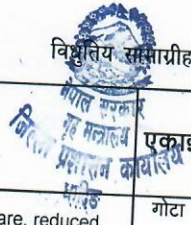 विधुतिय सामाग्रीह
नेपाल सरकार
गृह मन्त्रालय
जिल्ला प्रशासन कार्यालय
धादिङ
एकाइ
गोटा
are, reduced